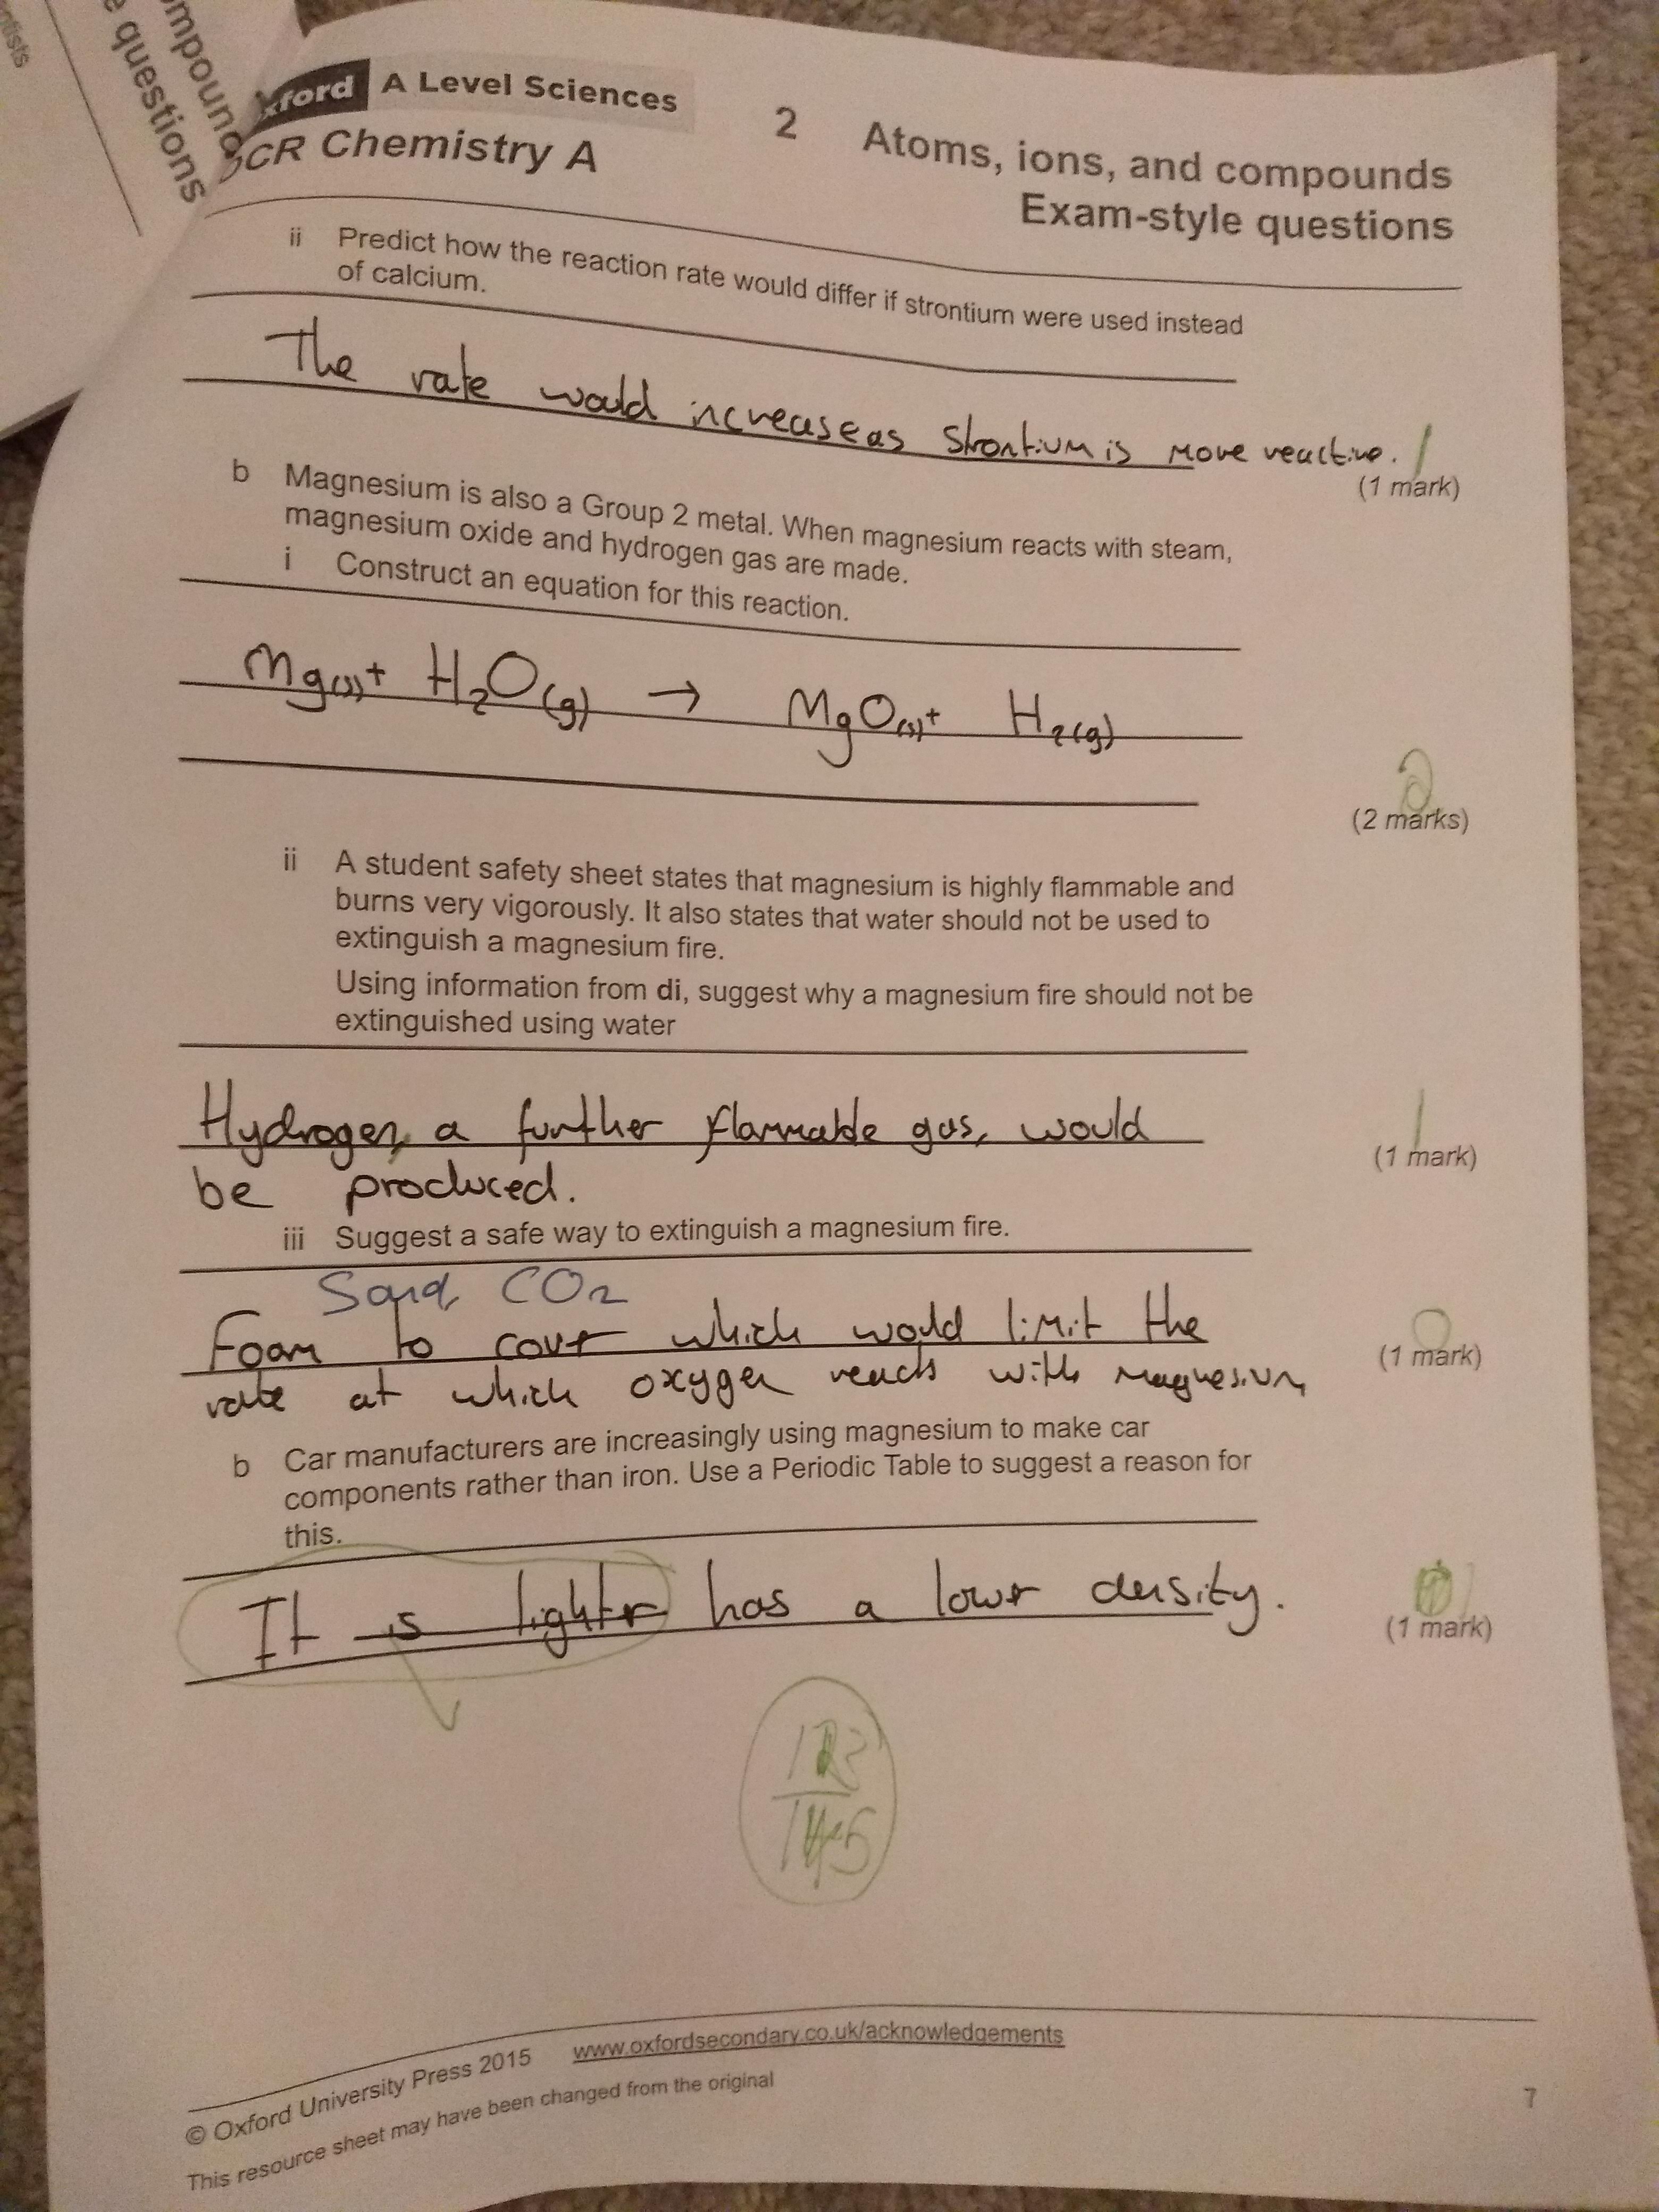 tists
ompound
e questions
xford A Level Sciences
OCR Chemistry A
2 Atoms, ions, and compounds
Exam-style questions
ii Predict how the reaction rate would differ if strontium were used instead
of calcium.
The rate would increase as strontium is more reactive. 1
(1 mark)
b Magnesium is also a Group 2 metal. When magnesium reacts with steam,
magnesium oxide and hydrogen gas are made.
i Construct an equation for this reaction.
Mg(s) + H2O(g) → MgO(s) + H2(g)
2
(2 marks)
ii A student safety sheet states that magnesium is highly flammable and
burns very vigorously. It also states that water should not be used to
extinguish a magnesium fire.
Using information from di, suggest why a magnesium fire should not be
extinguished using water
Hydrogen, a further flammable gas, would
be produced.
1
(1 mark)
iii Suggest a safe way to extinguish a magnesium fire.
Sand, CO2
Foam to cover which would limit the
rate at which oxygen reacts with magnesium
0
(1 mark)
b Car manufacturers are increasingly using magnesium to make car
components rather than iron. Use a Periodic Table to suggest a reason for
this.
It is lighter has a lower density.
(1 mark)
© Oxford University Press 2015 www.oxfordsecondary.co.uk/acknowledgements
This resource sheet may have been changed from the original
7